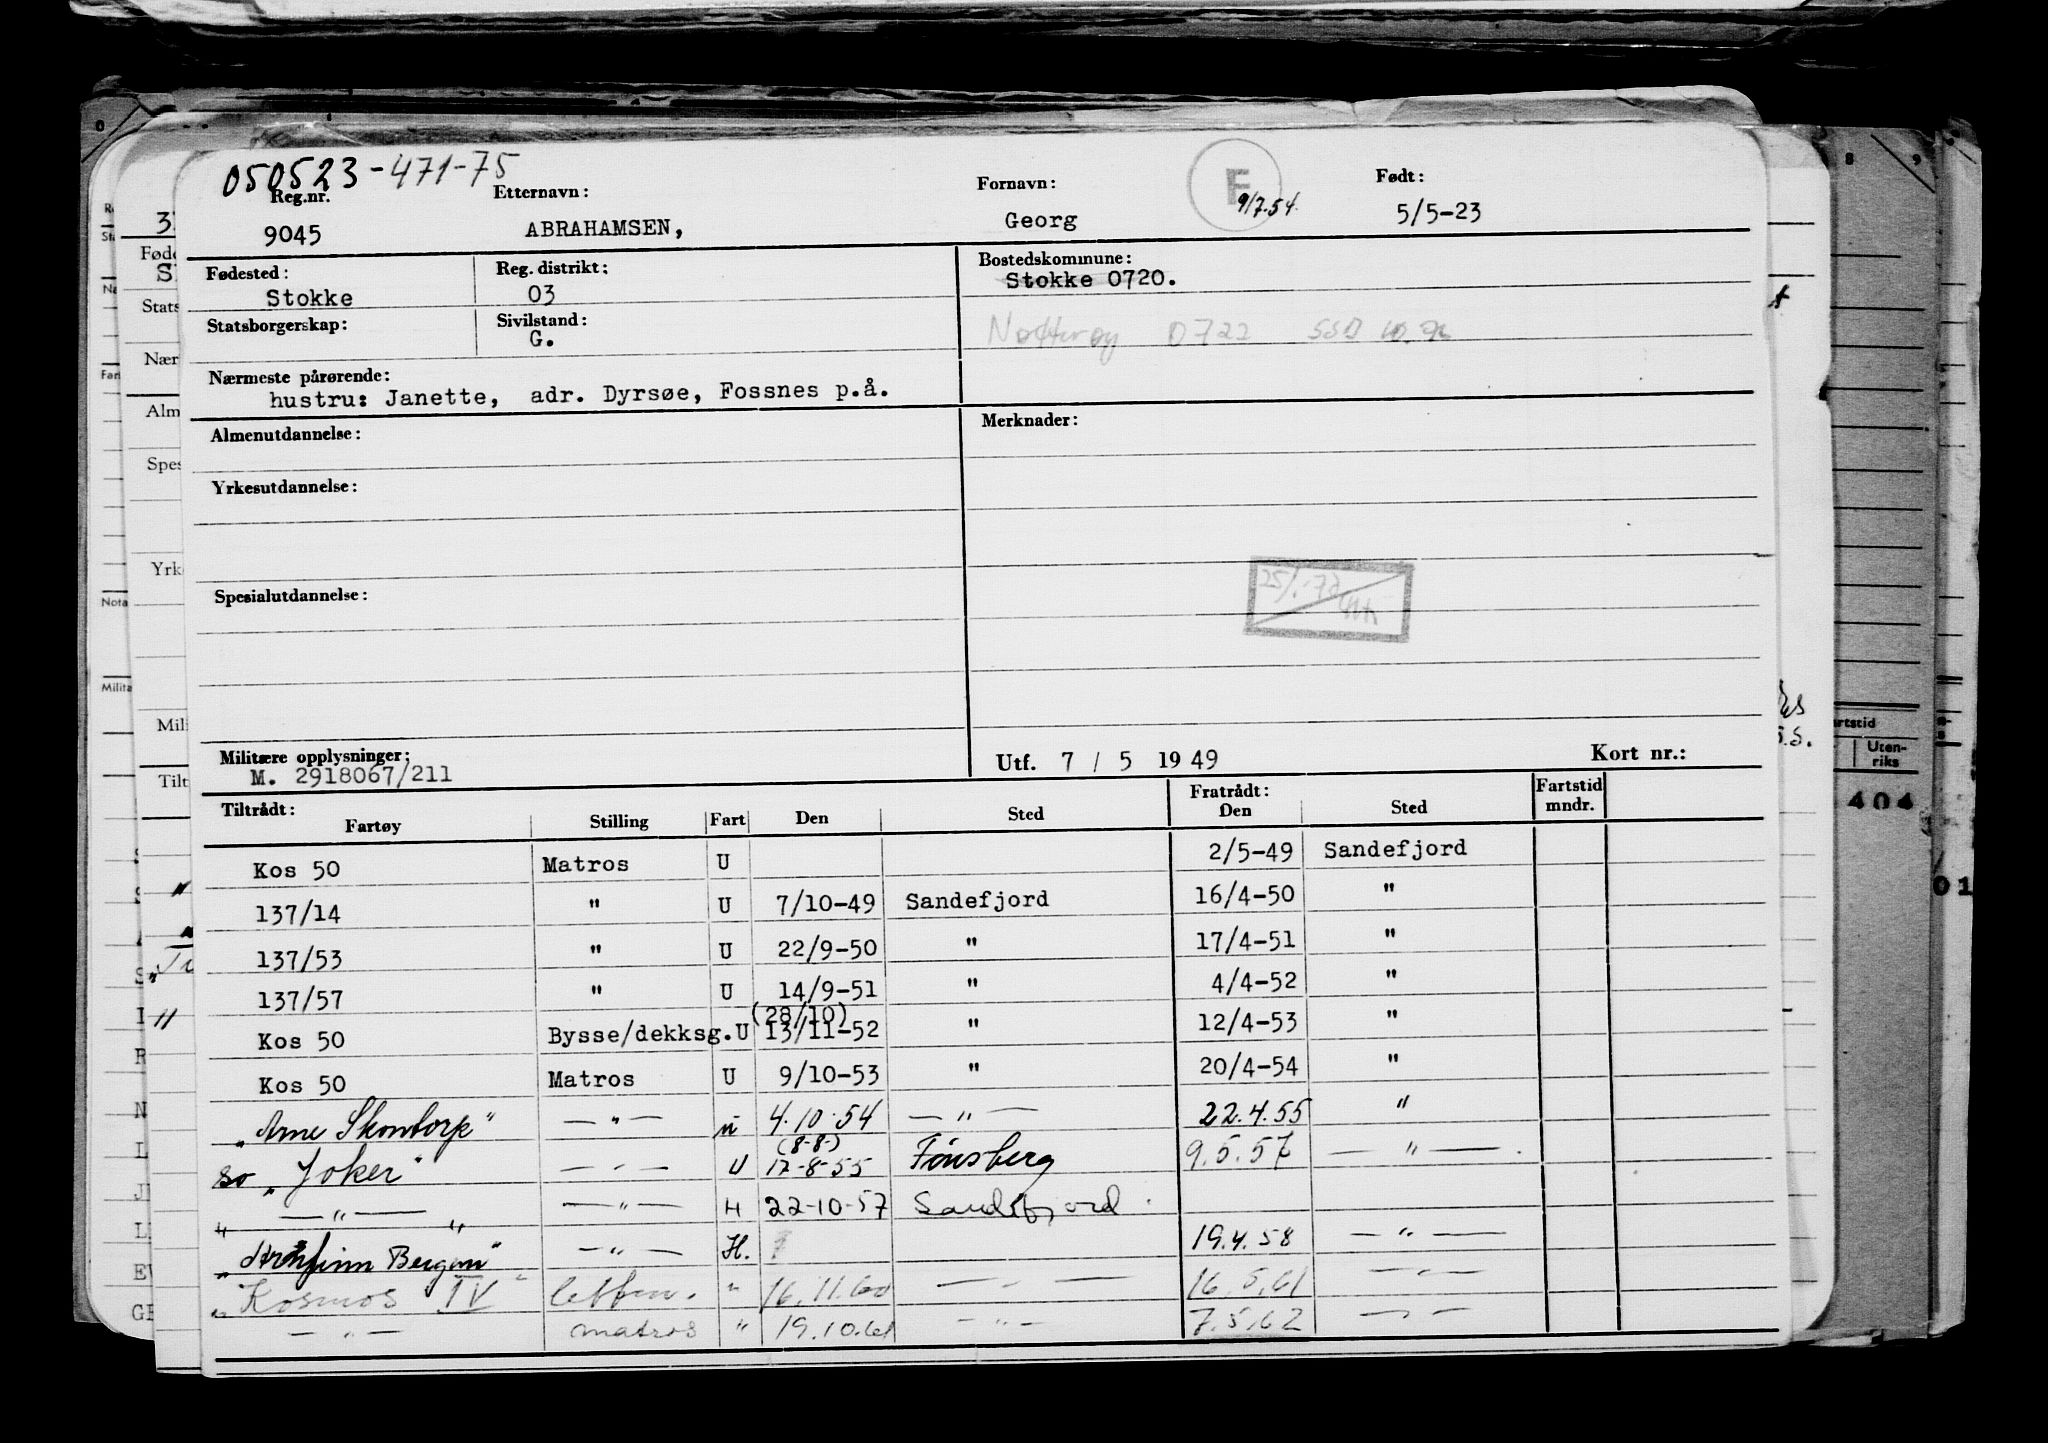 050523-471-75
Reg.nr. Etternavn: Fornavn: F 9/7.54. Født:
9045 ABRAHAMSEN, Georg 5/5-23
Fødested: Reg. distrikt: Bostedskommune:
Stokke 03 Stokke 0720.
Statsborgerskap: Sivilstand:
G. Nøtterøy 0722
Nærmeste pårørende:
hustru: Janette, adr. Dyrsøe, Fossnes p.å.
Almenutdannelse: Merknader:
Yrkesutdannelse:
Spesialutdannelse:
Militære opplysninger:
M. 2918067/211 Utf. 7 / 5 1949 Kort nr.:
Tiltrådt: Fratrådt: Fartstid
Fartøy Stilling Fart Den Sted Den Sted mndr.
Kos 50 Matros U 2/5-49 Sandefjord
137/14 " U 7/10-49 Sandefjord 16/4-50 "
137/53 " U 22/9-50 " 17/4-51 "
137/57 " U 14/9-51 " 4/4-52 "
(28/10)
Kos 50 Bysse/dekksg. U 13/11-52 " 12/4-53 "
Kos 50 Matros U 9/10-53 " 20/4-54 "
"Arne Skontorp" — " — u 4.10.54 — " — 22.4.55 "
(8-8-)
so "Joker" — " — U 17-8-55 Tønsberg 9.5.57 — " —
" — " — " — " — H 22-10-57 Sandefjord
"Arnfinn Bergan" — " — H. 19.4.58 — " —
"Kosmos IV" " 16.11.60 — " — 16.5.61 — " —
— " — matros " 19.10.61 — " — 7.5.62 — " —